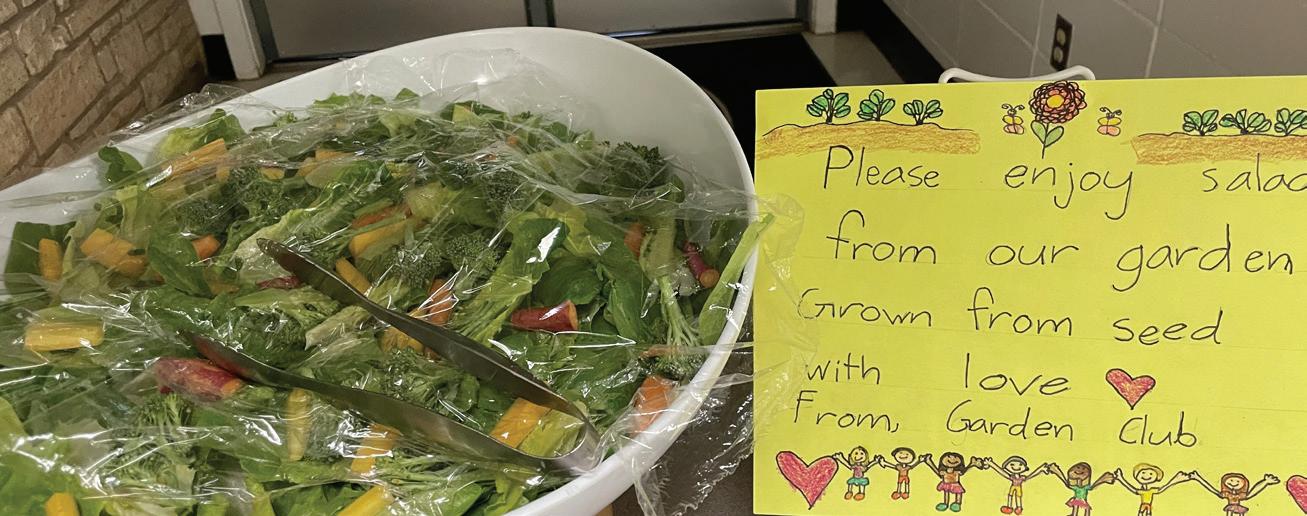 Please enjoy salad
from our garden
Grown from seed
with love
From, Garden Club